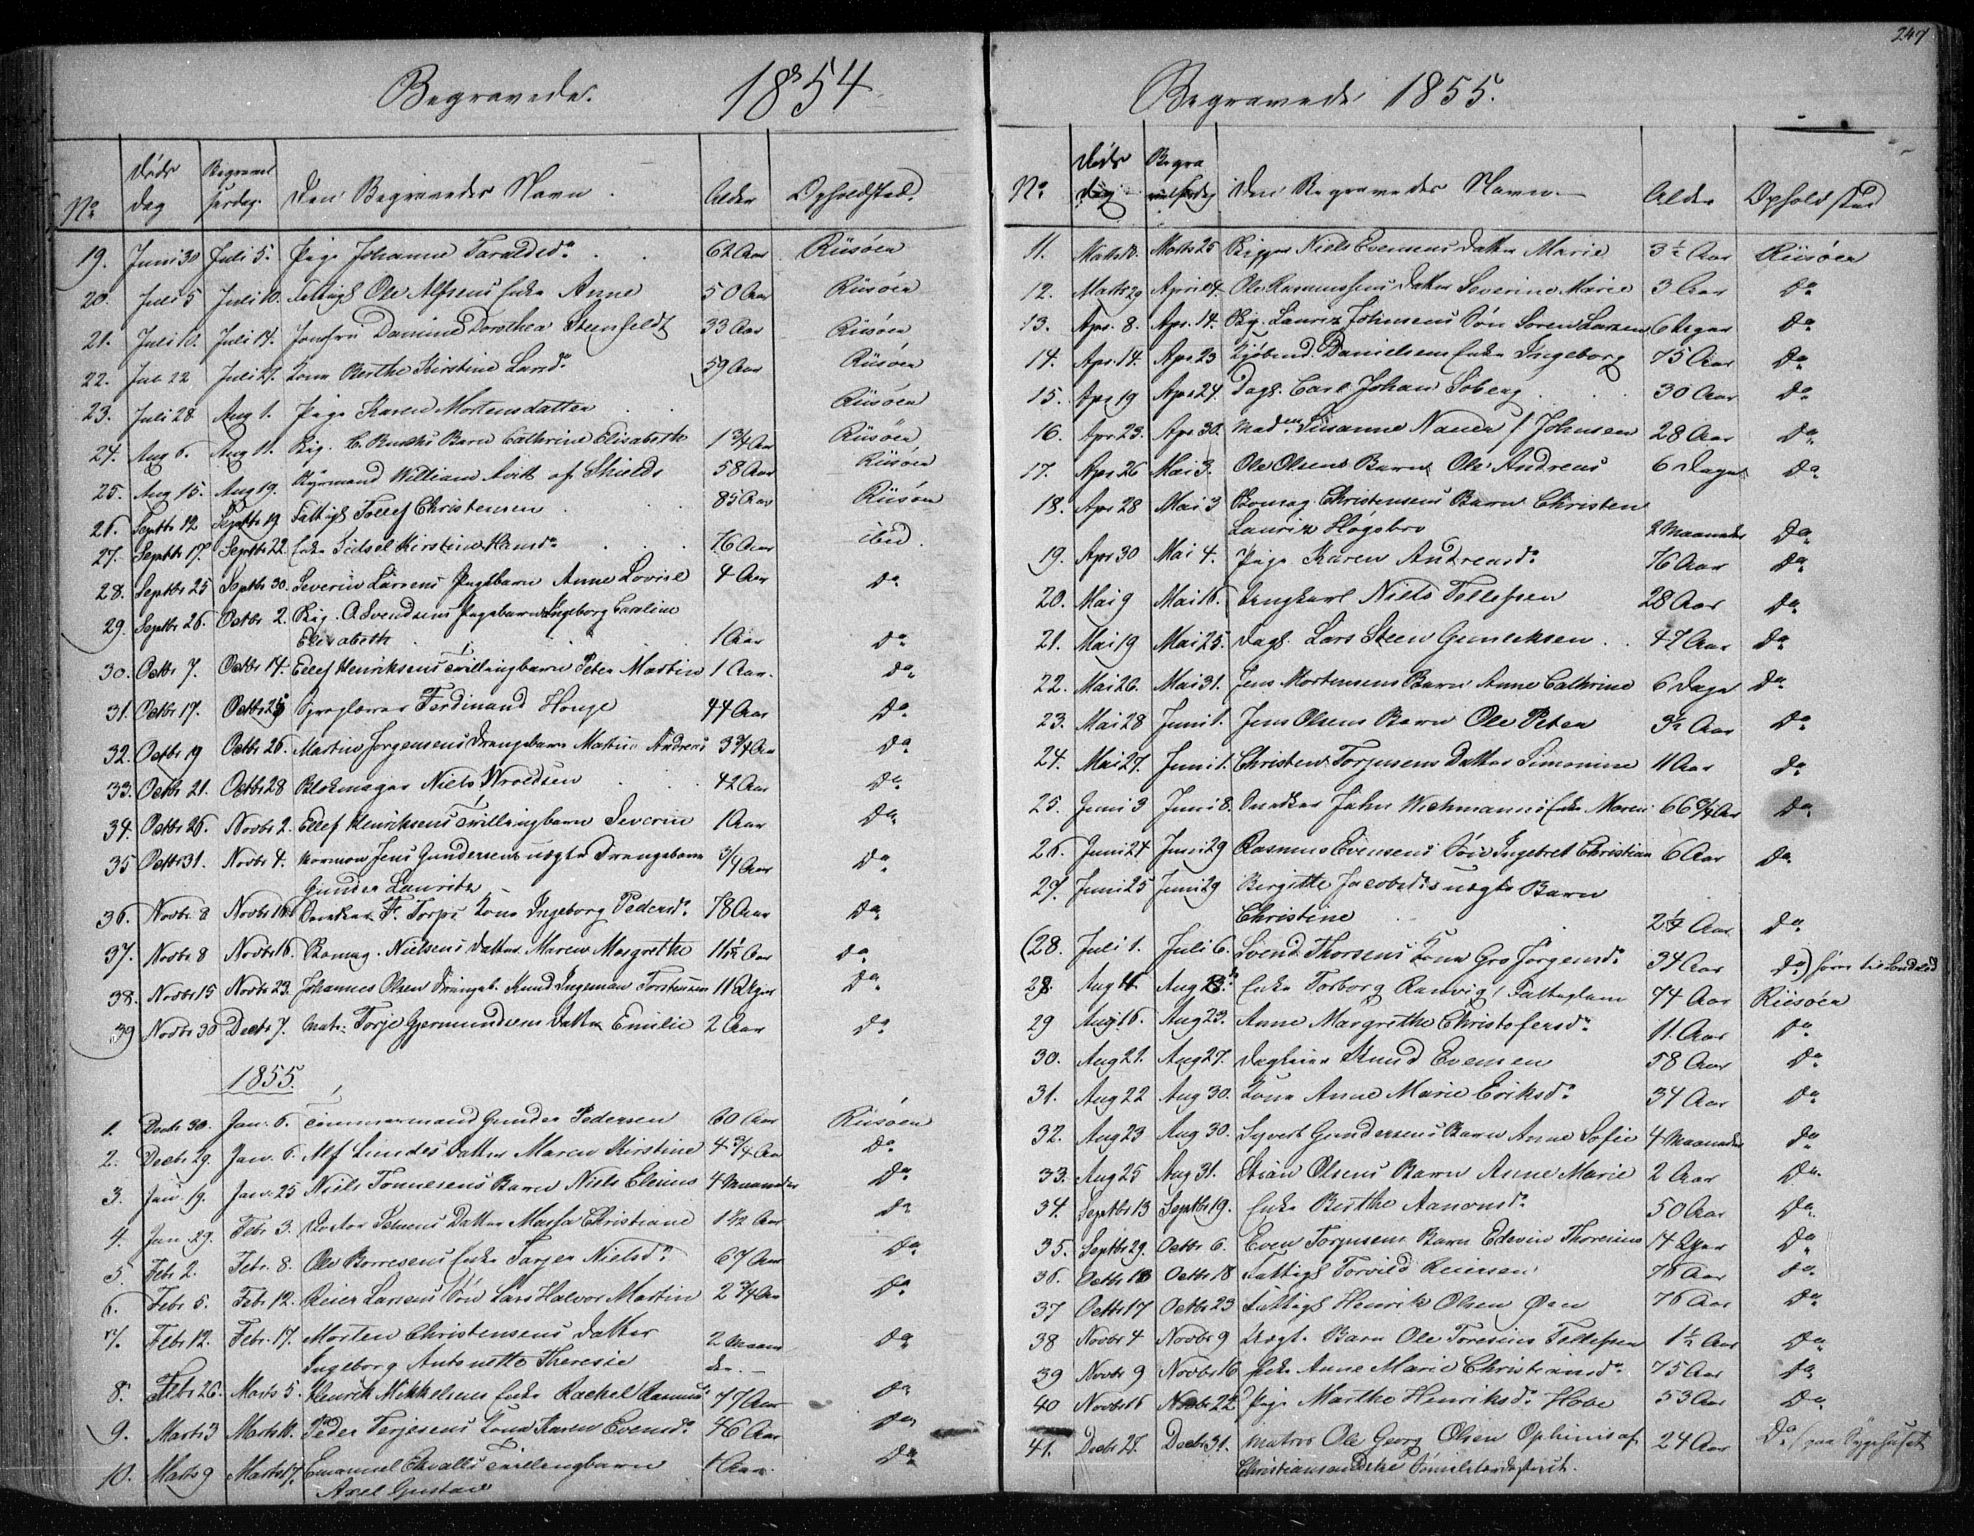 Begravede. 1854
No Døds dag Begravelsesdag. Den Begravedes Navn. Alder Opholdsted.
19. Juni 30 Juli 5. Pige Johanne Taraldsd. 62 Aar Riisøen
20. Juli 5 Juli 10. Fattigl. Ole Alfsens Enke Anne 50 Aar Riisøen
21. Juli 10. Juli 14. Jomfru Damine Dorothea Steenfeldt 33 Aar Riisøen
22. Juli 22 Juli 27. Kone Berthe Kirstine Larsd. 59 Aar Riisøen
23. Juli 28 Aug 1. Pige Karen Mortensdatter Riisøen
24. Aug 6. Aug 11. Big. C. Barn Cathrine Elisabeth 1 3/4 Aar Riisøen
25. Aug 15. Aug 19. Styrmand William Avit af Shields 58 Aar Riisøen
26. Septbr 12 Septbr 19 Fattigl. Tollef Christensen 85 Aar Riisøen
27. Septbr 17. Septbr 22. Enke Sidsel Kirstine Hansd. 76 Aar ibid.
28. Septbr 25 Septbr 30. Severin Larsens Pigebarn Anne Lovise 4 Aar Do
29. Septbr 26. Octbr 2. Big. O. Svendsens Pigebarn Ingeborg Caroline
Elisabeth 1 Aar Do
30. Octbr 7. Octbr 14. Ellef Henriksens Tvillingbarn Peter Martin 1 Aar. Do
31. Octbr 17. Octbr 25 Sproglærer Ferdinand Houge 44 Aar Do
32. Octbr 19 Octbr 26. Martin Jorgensens Drengebarn Matius Andreas 3 3/4 Aar Do
33. Octbr 21. Octbr 28 Blokmager Niels Wroldsen 42 Aar Do
34. Octbr 26. Novbr 2. Ellef Henriksens Tvillingbarn Severin 1 Aar Do
35 Octbr 31. Novbr 4. Jens Gundersens uægte Drengebarn 3/4 Aar Do
Gunder Lauritz
36. Novbr 8 Novbr 16 F. Torps Kone Ingeborg Pedersd. 78 Aar Do
37. Novbr 8 Novbr 16. Nielsens Datter Maren Margrethe 11 1/2 Aar Do
38. Novbr 15 Novbr 23. Johannes Olsen Drengeb. Knud Ingeman Torstensen 11 Uger Do
39 Novbr 30 Decbr 7. Matr: Torje Gjermundsens Datter Emilie 2 Aar Do
1855.
1. Decbr 30. Jan. 6. Tømmermand Gunder Pedersen 60 Aar Riisøen
2. Decbr 29. Jan. 6. Alf Lundes Datter Maren Kirstine 4 3/4 Aar Do
3. Jan 19. Jan. 25 Niels Tønnesens Barn Niels Elenius 4 Maaneder Do
4. Jan. 29. Febr 3. Datter Marfa Christiane 1 1/2 Aar Do
5. Febr 2. Febr. 8. Ole Børresens Enke Torjer Nielsd. 67 Aar Do
6. Febr 5. Febr 12. Reier Larsens Søn Lars Halvor Martin 2 3/4 Aar Do
7. Febr 12. Febr. 17. Morten Christensens Datter 2 Maane
Ingeborg Antonette Theresie der. Do
8. Febr 26. Marts 5. Henrik Mikkelsens Enke Rachel Rasmusd. 77 Aar Do
9. Marts 3 Marts 10. Peder Terjesens Kone Karen Evensd. 46 Aar Do
10. Marts 9 Marts 17. Emanuel Tvillingbarn 1 Aar. Do
Axel Gustav
247
Begravede 1855.
No Døds dag Begravelsesdag Den Begravedes Navn. Alder Opholdsted
11. Marts 18. Marts 25 Skipper Niels Evensens Datter Marie 3 1/2 Aar Riisøen
12. Marts 29 April 4. Ole Rasmussens Datter Severine Marie 3 Aar Do
13. Apr. 8. Apr. 14. Big. Lauriz Johnsens Søn Søren Larzen 6 Uger Do
14. Apr. 14. Apr 23 Danielsens Enke Ingeborg 75 Aar Do
15. Apr 19 Apr 24. Dagl. Carl Johan Soberg 30 Aar Do
16. Apr 23. Apr 30. Madm. Susanne Nauer f. Johnsen 28 Aar Do
17. Apr 26 Mai 3. Ole Olsens Barn Ole Andreas 6 Dage Do
18. Apr 28 Mai 3 Christensens Barn Christen
Lauriz Høgebro 2 Maaneder Do
19. Apr 30 Mai 4. Pige Karen Andreasd. 76 Aar Do
20. Mai 9 Mai 16. Ungkarl Niels Tellefsen 28 Aar Do
21. Mai 19 Mai 25. Dagl. Lars Steen Gunleksen 47 Aar Do
22. Mai 26. Mai 31. Jens Mortensens Barn Anne Cathrine 6 Dage Do
23. Mai 28 Juni 1. Jens Olsens Barn Ole Peter 3 1/2 Aar Do
24. Mai 27. Juni 1. Christen Torjusens Datter Simonine 11 Aar Do
25. Juni 3 Juni 8. John Wichmanns Enke Maren 66 3/4 Aar Do
26. Juni 24 Juni 29 Rasmus Evensens Søn Ingebret Christian 6 Aar Do
27. Juni 25 Juni 29 Birgitte Jacobsd. uægte Barn
Christine 2 1/4 Aar Do
(28. Juli 1. Juli 6. Svend Thorsens Kone Gro Jørgensd. 34 Aar Do)
28. Aug 4 Aug 8. Enke Torborg Ranvig, Fattiglem 74 Aar Riisøen
29 Aug 16. Aug 23. Anne Margrethe Christofersd. 11 Aar Do
30. Aug 21. Aug 27. Knud Evensen 58 Aar Do
31. Aug 22 Aug 30. Kone Anne Marie Eriksd. 34 Aar Do
32. Aug 23 Aug 30. Syvert Gundersens Barn Anne Sofie 4 Maaneder Do
33. Aug 25 Aug 31. Stian Olsens Barn Anne Marie 2 Aar Do
34. Septbr 13 Septbr 19. Enke Berthe Aanonsd. 50 Aar Do
35. Septbr 29. Octbr 6. Even Torjusens Barn Edevin Thorenius 14 Uger Do
36. Octbr 13 Octbr 18 Fattigl Torvild Reiersen 78 Aar Do
37 Octbr 17 Octbr 23 Fattigl Henrik Olsen Øen 76 Aar Do
38 Novbr 4 Novbr 9 Uægt. Barn Ole Toresius Tellefsen 1 1/2 Aar Do
39 Novbr 9 Novbr 16 Enke Anne Marie Christiansd. 75 Aar Do
40 Novbr 16 Novbr 22 Pige Marthe Henriksd. Hobe 53 Aar Do
41. Decbr 27. Decbr 31. Matros Ole Georg Olsen Ophimis af 24 Aar Do. (paa Sygehuset
Christiansandske